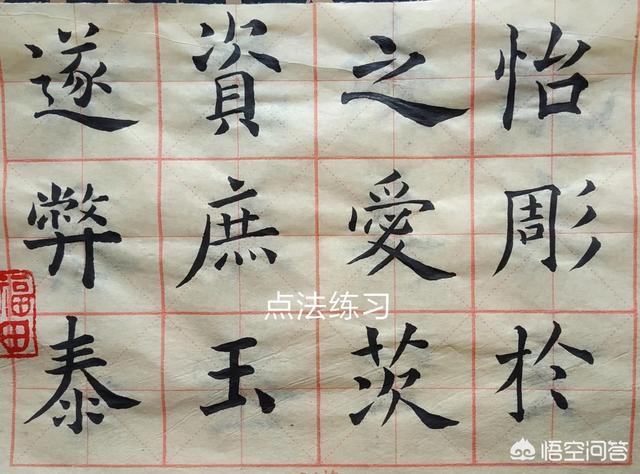 怡彫於
之愛茨
資庶玉
遂弊泰
福田
点法练习
悟空问答